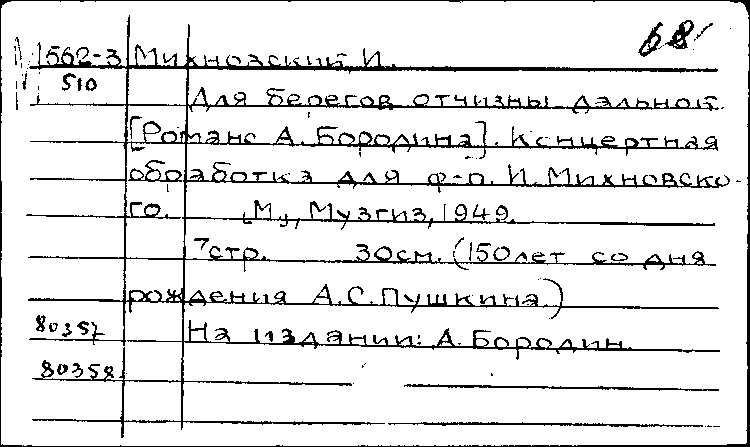 68
1562-3 Михновский, И.
510
Для берегов отчизны дальной.
[Романс А. Бородина]. Концертная
обработка для ф-п. И. Михновско-
го. [М], Музгиз, 1949.
7стр. 30см. (150 лет со дня
рождения А.С. Пушкина.)
80357 На издании: А. Бородин.
80358